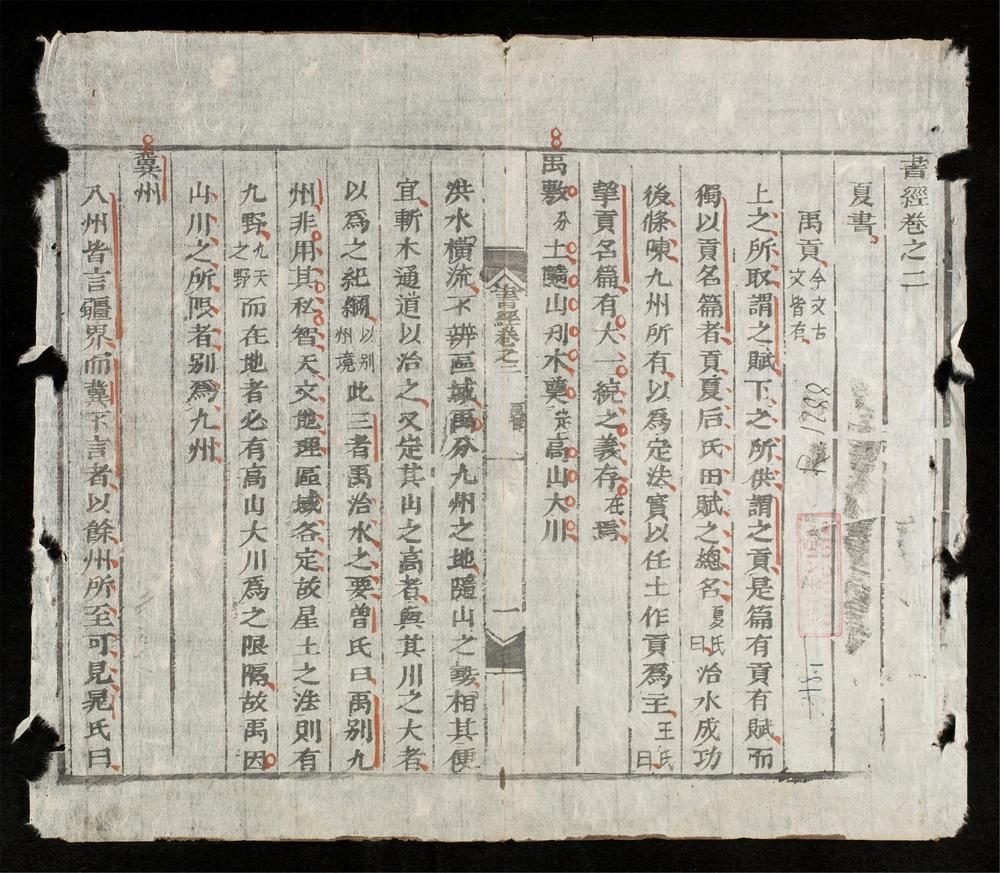 書經卷之二
夏書
禹貢今文古文皆有
上之所取謂之賦下之所供謂之貢是篇有貢有賦而
獨以貢名篇者貢夏后氏田賦之總名夏氏曰治水成功
後條陳九州所有以為定法實以任土作貢為主王氏曰
擧貢名篇有大一統之義存在焉
禹敷分土隨山刊木奠定高山大川
書經卷之二
夏書
一
洪水橫流不辨區域禹分九州之地隨山之勢相其便
宜斬木通道以治之又定其山之高者與其川之大者
以爲之紀綱以別州境此三者禹治水之要曾氏曰禹别九
州非用其私智天文地理區域各定故星土之法則有
九野九天之野而在地者必有高山大川爲之限隔故禹因
山川之所限者别爲九州
冀州
八州皆言疆界而冀不言者以餘州所至可見晁氏曰